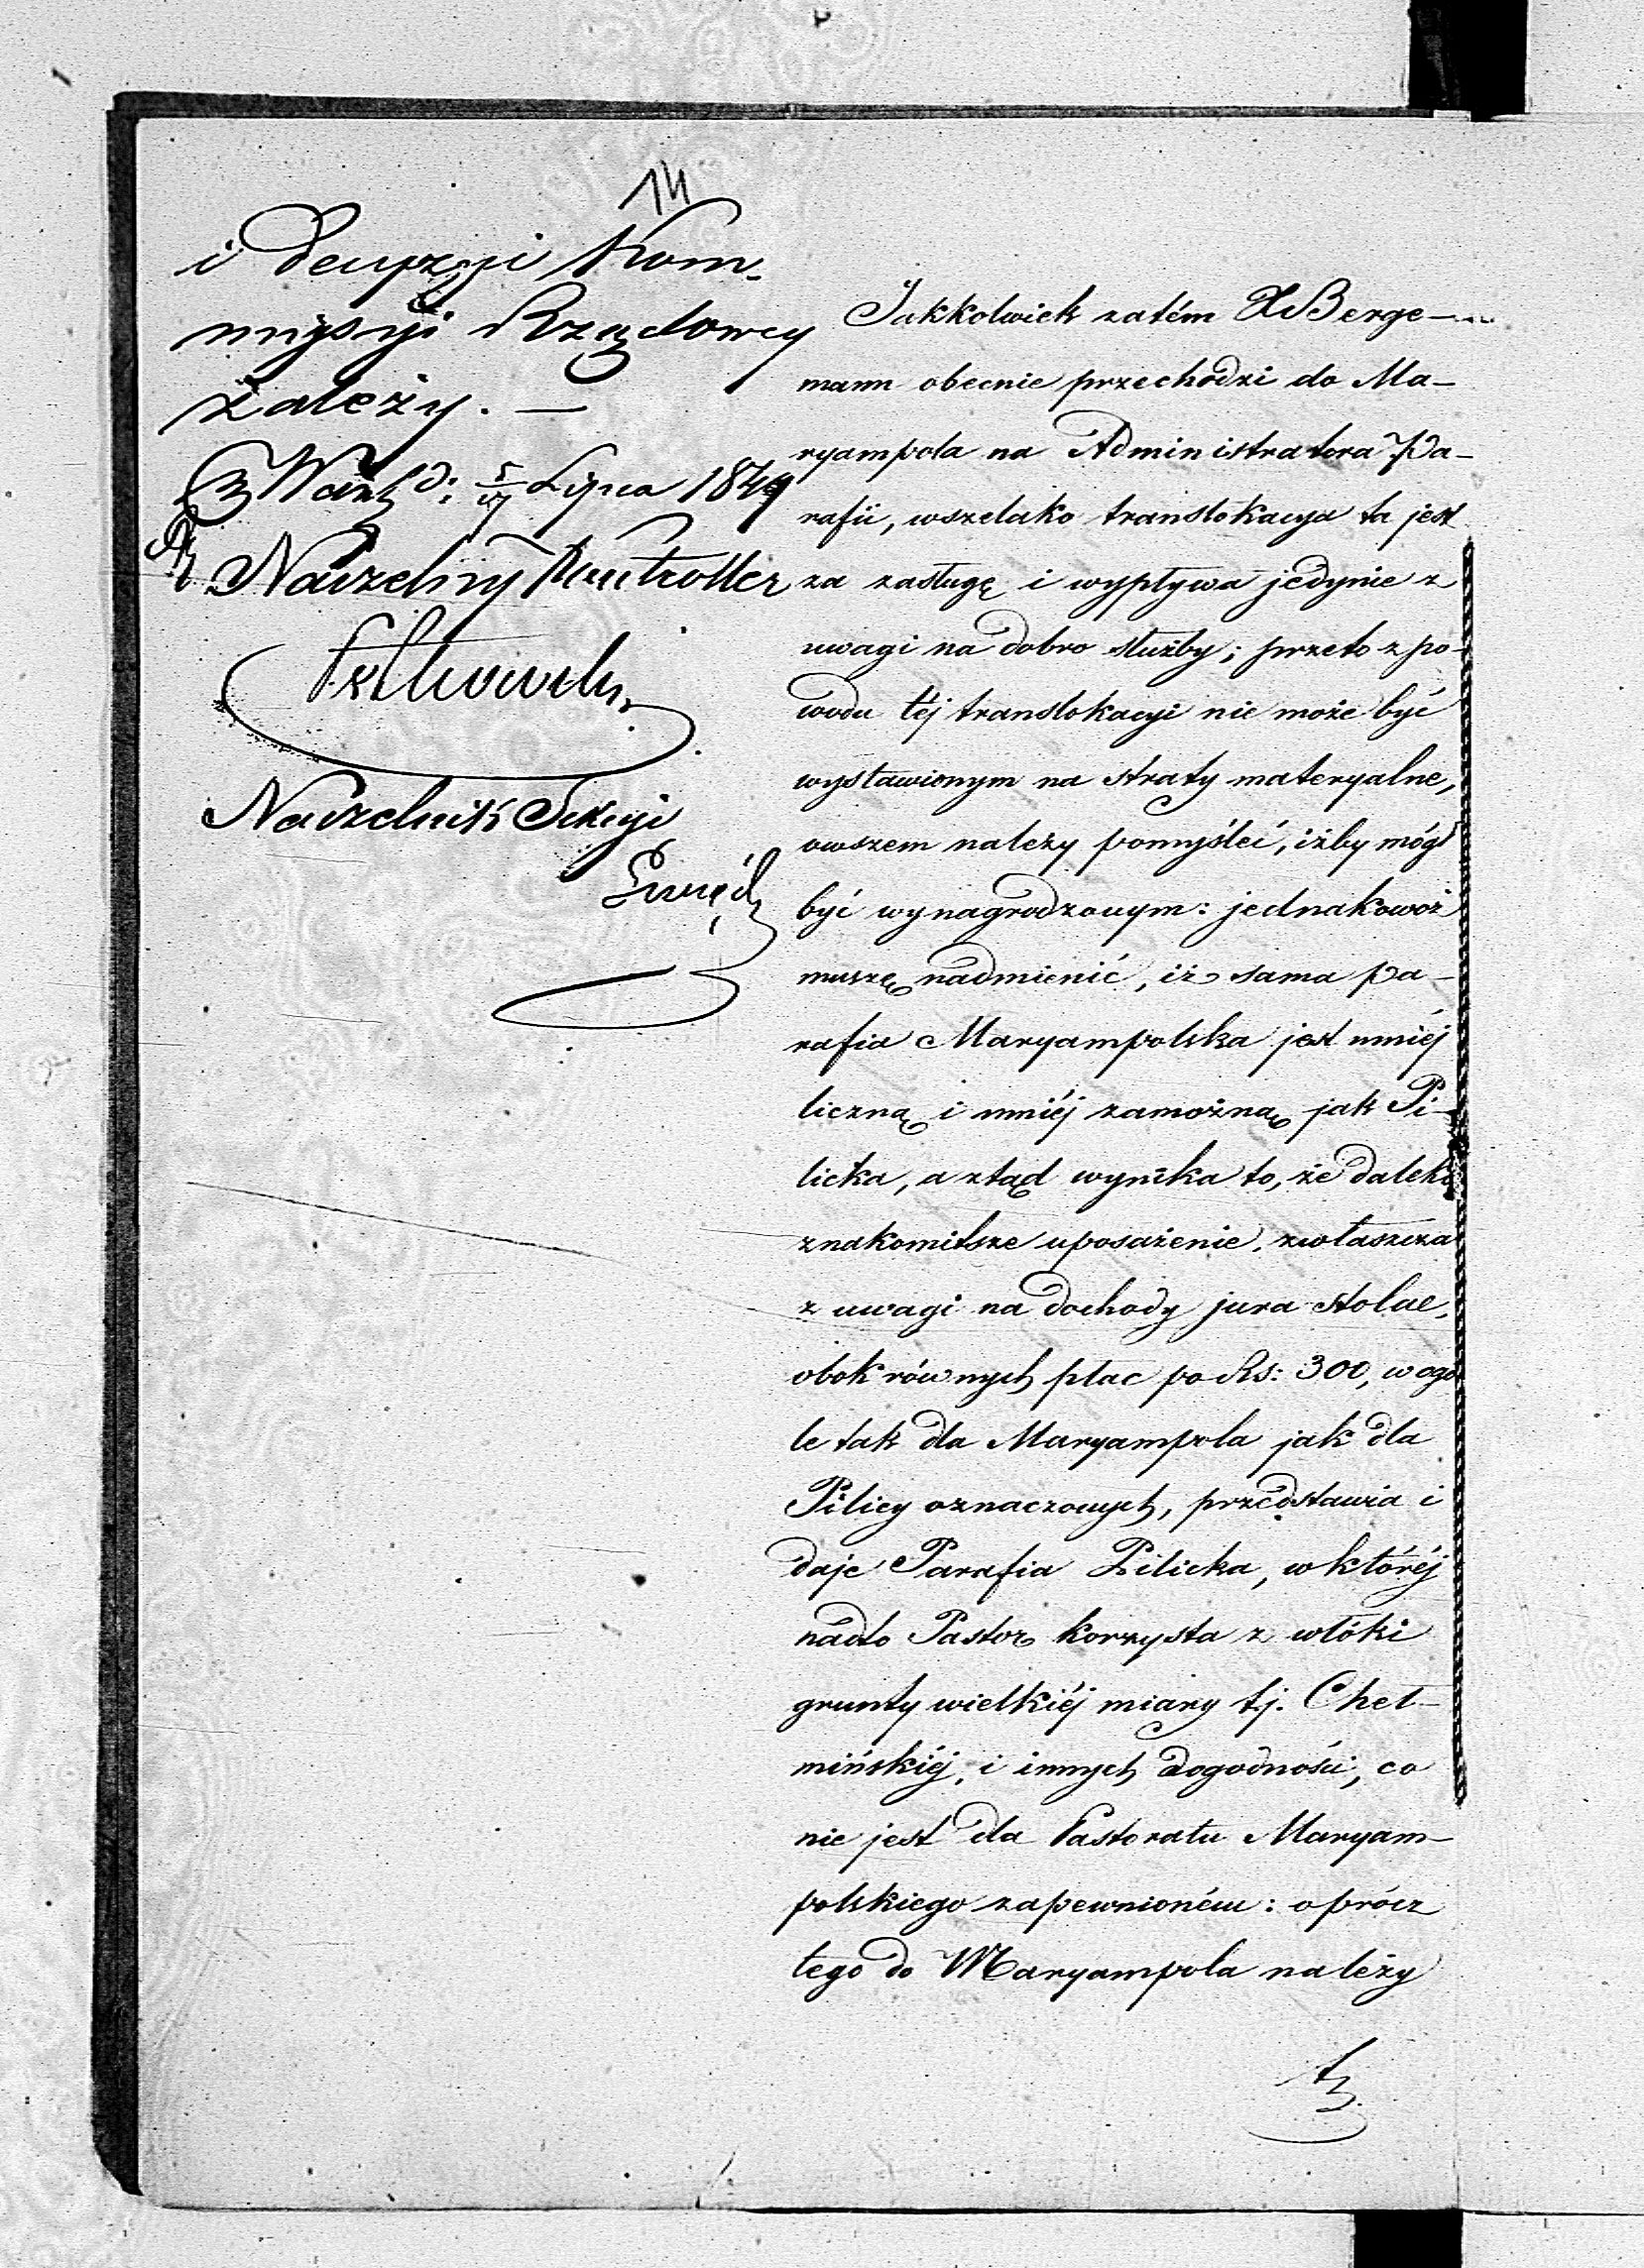 14
i decyzyi Kom-
myssyi Rządowey
zależy. —
Lipca 1849
Naczelny Kontroller
Naczelnik Sekcyi
Jakkolwiek zatém X Berge-
mann obecnie przechodzi do Ma-
ryampola na Administratora Pa-
rafii, wszelako translokacya ta jest
za zasługę i wypływa jedynie z
uwagi na dobro służby; przeto z po-
wodu téj translokacyi nie może być
wystawionym na straty materyalne,
owszem należy pomyśleć, iżby mógł
być wynagrodzonym: jednakowoż
muszę nadmienić, iż sama pa-
rafia Maryampolska jest mniéj
liczną i mniéj zamożną jak Pi-
licka, a ztąd wynika to, że daleko
znakomitsze uposażenie, zwłaszcza
z uwagi na dochody jura stolae,
obok równych płac po Rs: 300, w ogó
le tak dla Maryampola jak dla
Pilicy oznaczonych, przedstawia i
daje Parafia Pilicka, w któréj
nadto Pastor korzysta z włóki
grunty wielkiéj miary tj. Cheł-
mińskiéj, i innych dogodności, co
nie jest dla Pastoratu Maryam-
polskiego zapewnioném: oprócz
tego do Maryampola należy